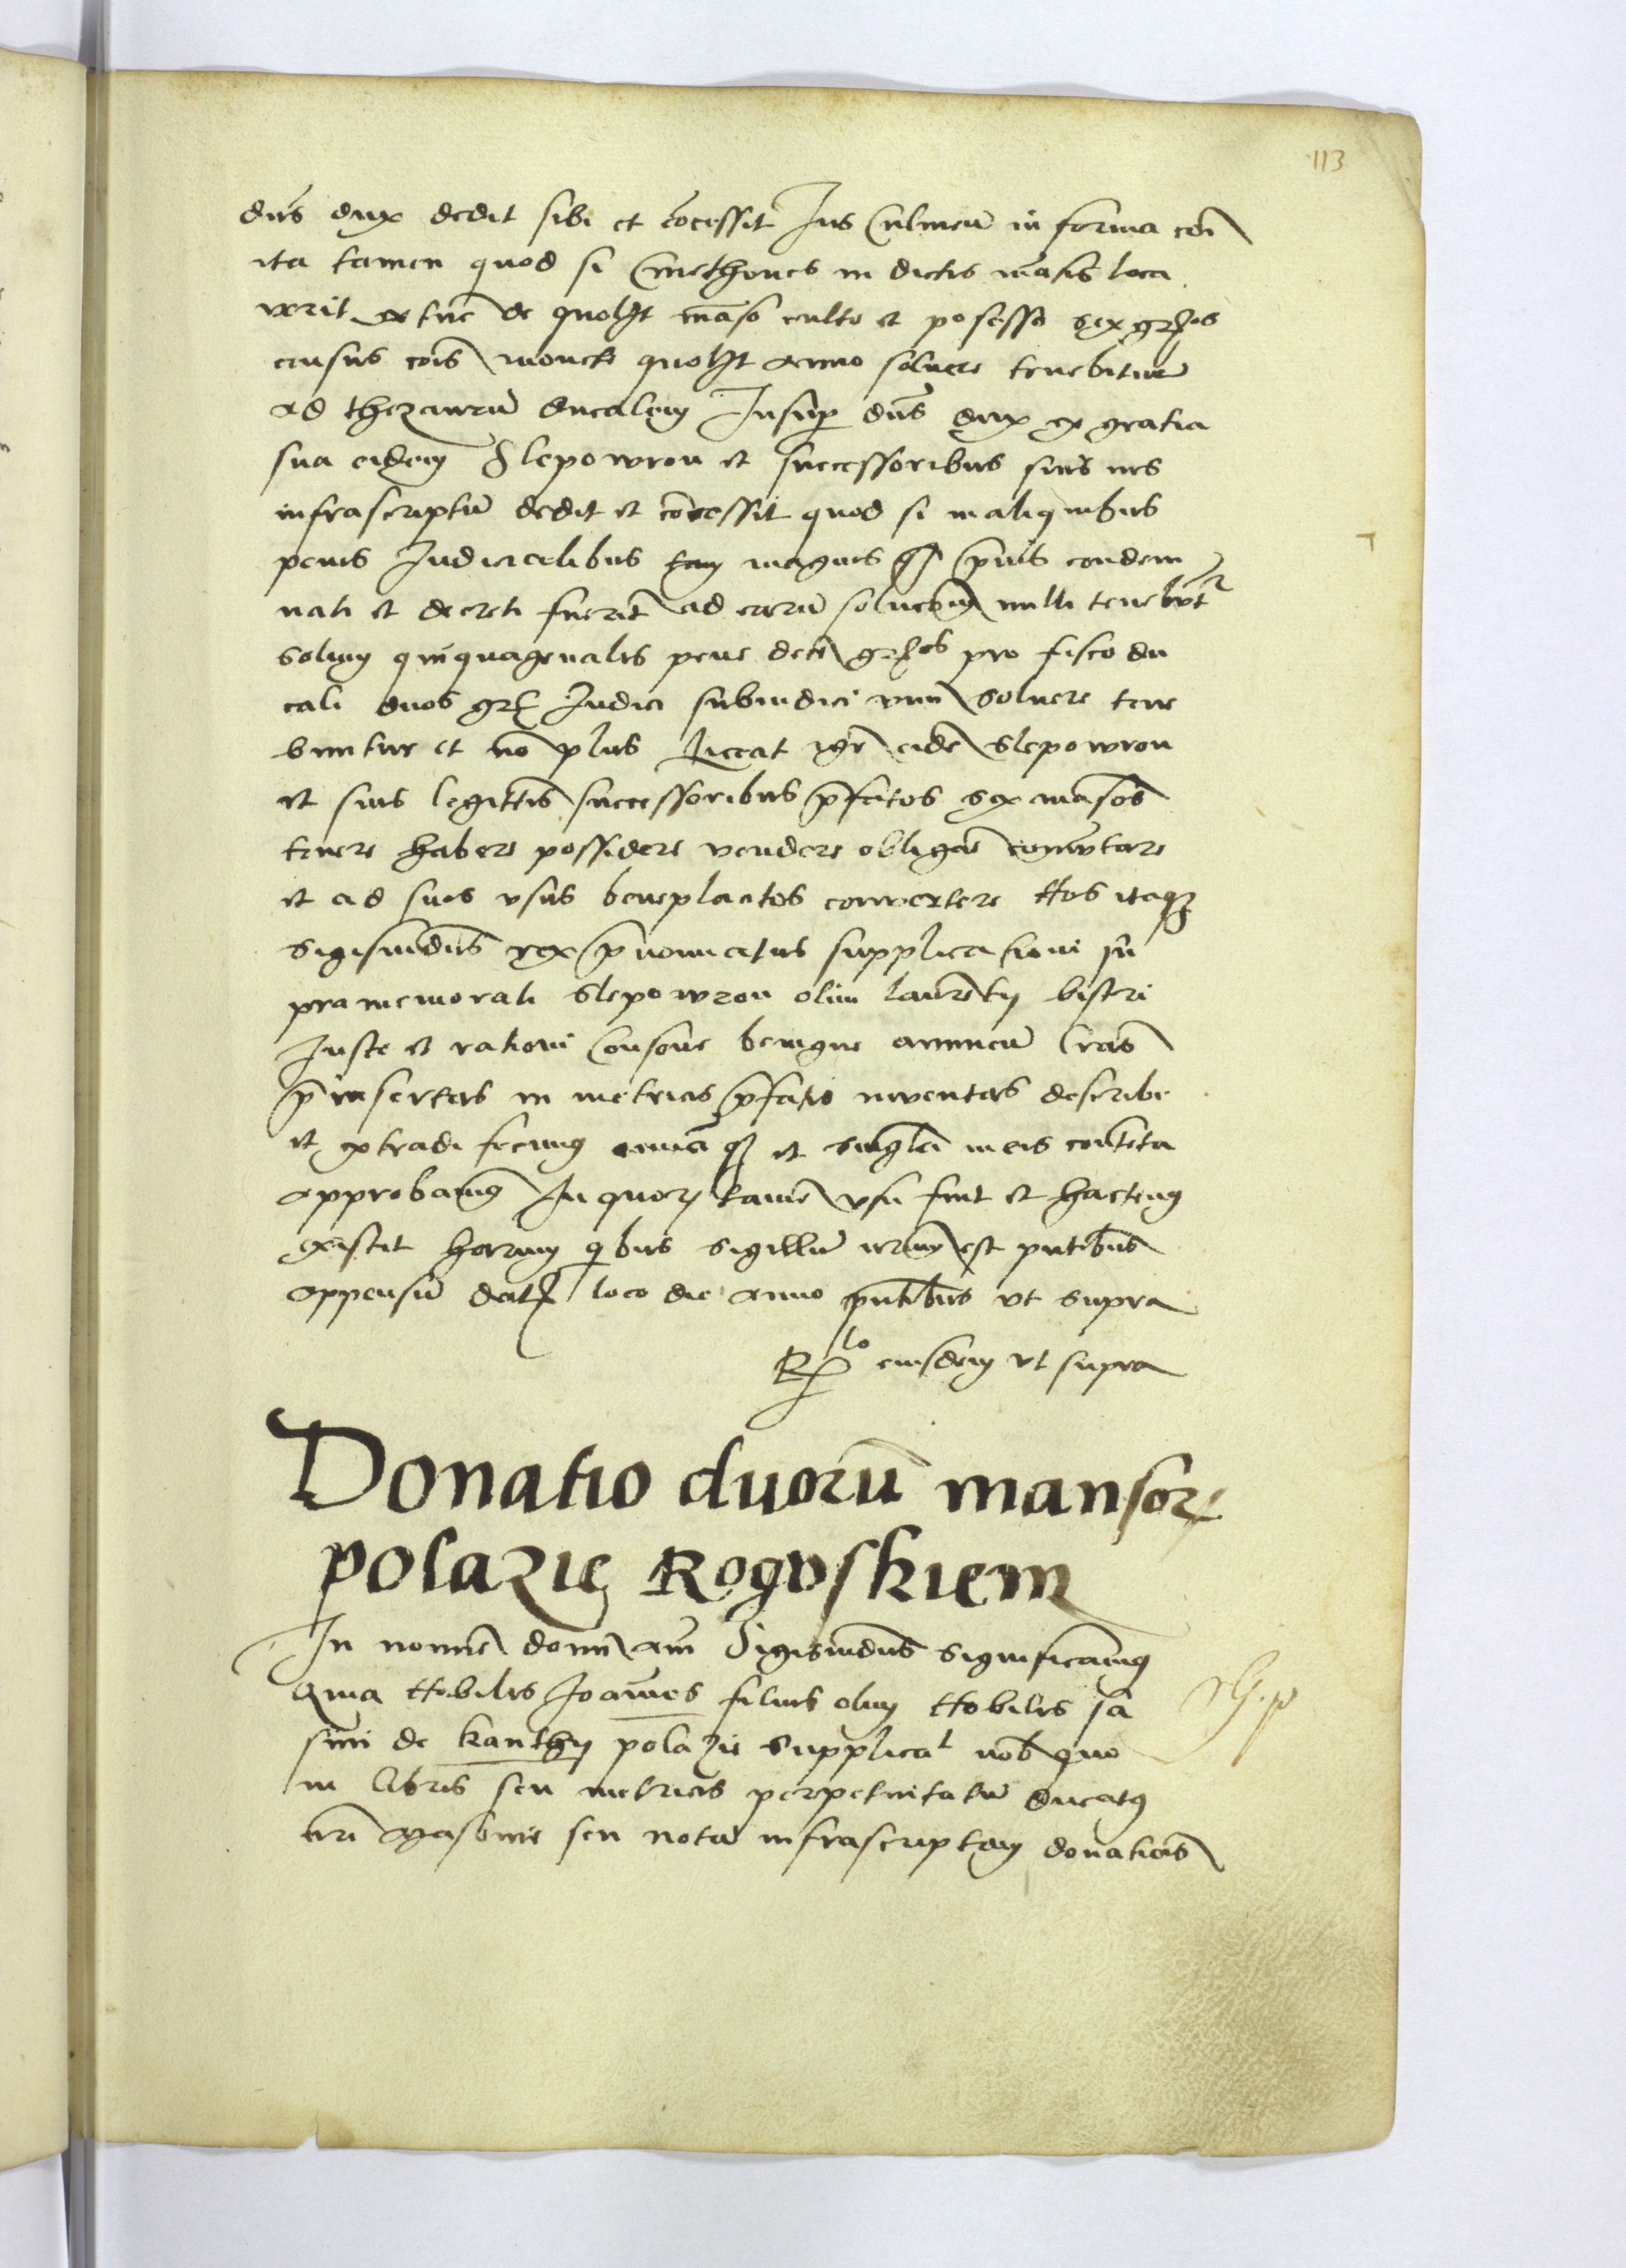 113
dns dux dedit sibi et cocessit Jus Culmeu in forma coi
ita tamen quod si Cmethones in dictis masis loca
verit ex tuc de quolibt maso culto et posesso sex grosos
census cois monete quolibt anno soluere tenebitur
ad thezauru ducalem Insup dns dux ex gratia
sua eidem Slepowron et successoribus suis ius
infrascriptu dedit et concessit quod si in aliquibus
penis Judicialibus tam magnis paruis condem
nati et decreti fuerit ad earu soluconem nulli tenebutr
Solum quiquagenalis pene dece grosos pro fisco du
cali duos gr Judici subiudici vnu soluere tene
buntur et no plus Liceat igr eide Slepowron
et suis legittis successoribus pfatos sex masos
tenere habere possidere vendere obligare comutare
et ad suos vsus beneplacitos conuertere Nos itaq
Sigismudus rex pnominatus supplicationi su
pramemorati Slepowron olim laurety bistri
Juste et rationi Consone benigne annueu lras
pinsertas in metricis pfatis inuentas describi
et extradi fecimus omia q et singla in eis conteta
approbamus In quor tame vsu fuit et hactenus
existit harum qbus sigillu nrum est pntibus
appensu dat loco die anno pntibus vt supra
Rlo eiusdem vt supra
Donatio duoru mansor
polazie Roguskiem
In nomine domi am Sigismudus significamus
Quia Nobilis Joannes filius olim Nobilis Ja
sini de kanthy polazie supplicat nob quo
in libris seu metricis perpetuitatu ducatus
nri Masouie seu nota infrascriptam donatiois